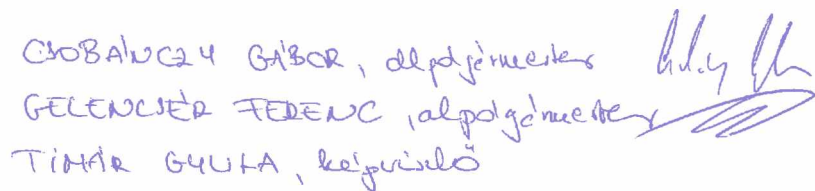 CSOBÁNCZY GÁBOR, alpolgármester
GELENCSÉR FERENC, alpolgármester
TÍMÁR GYULA, képviselő